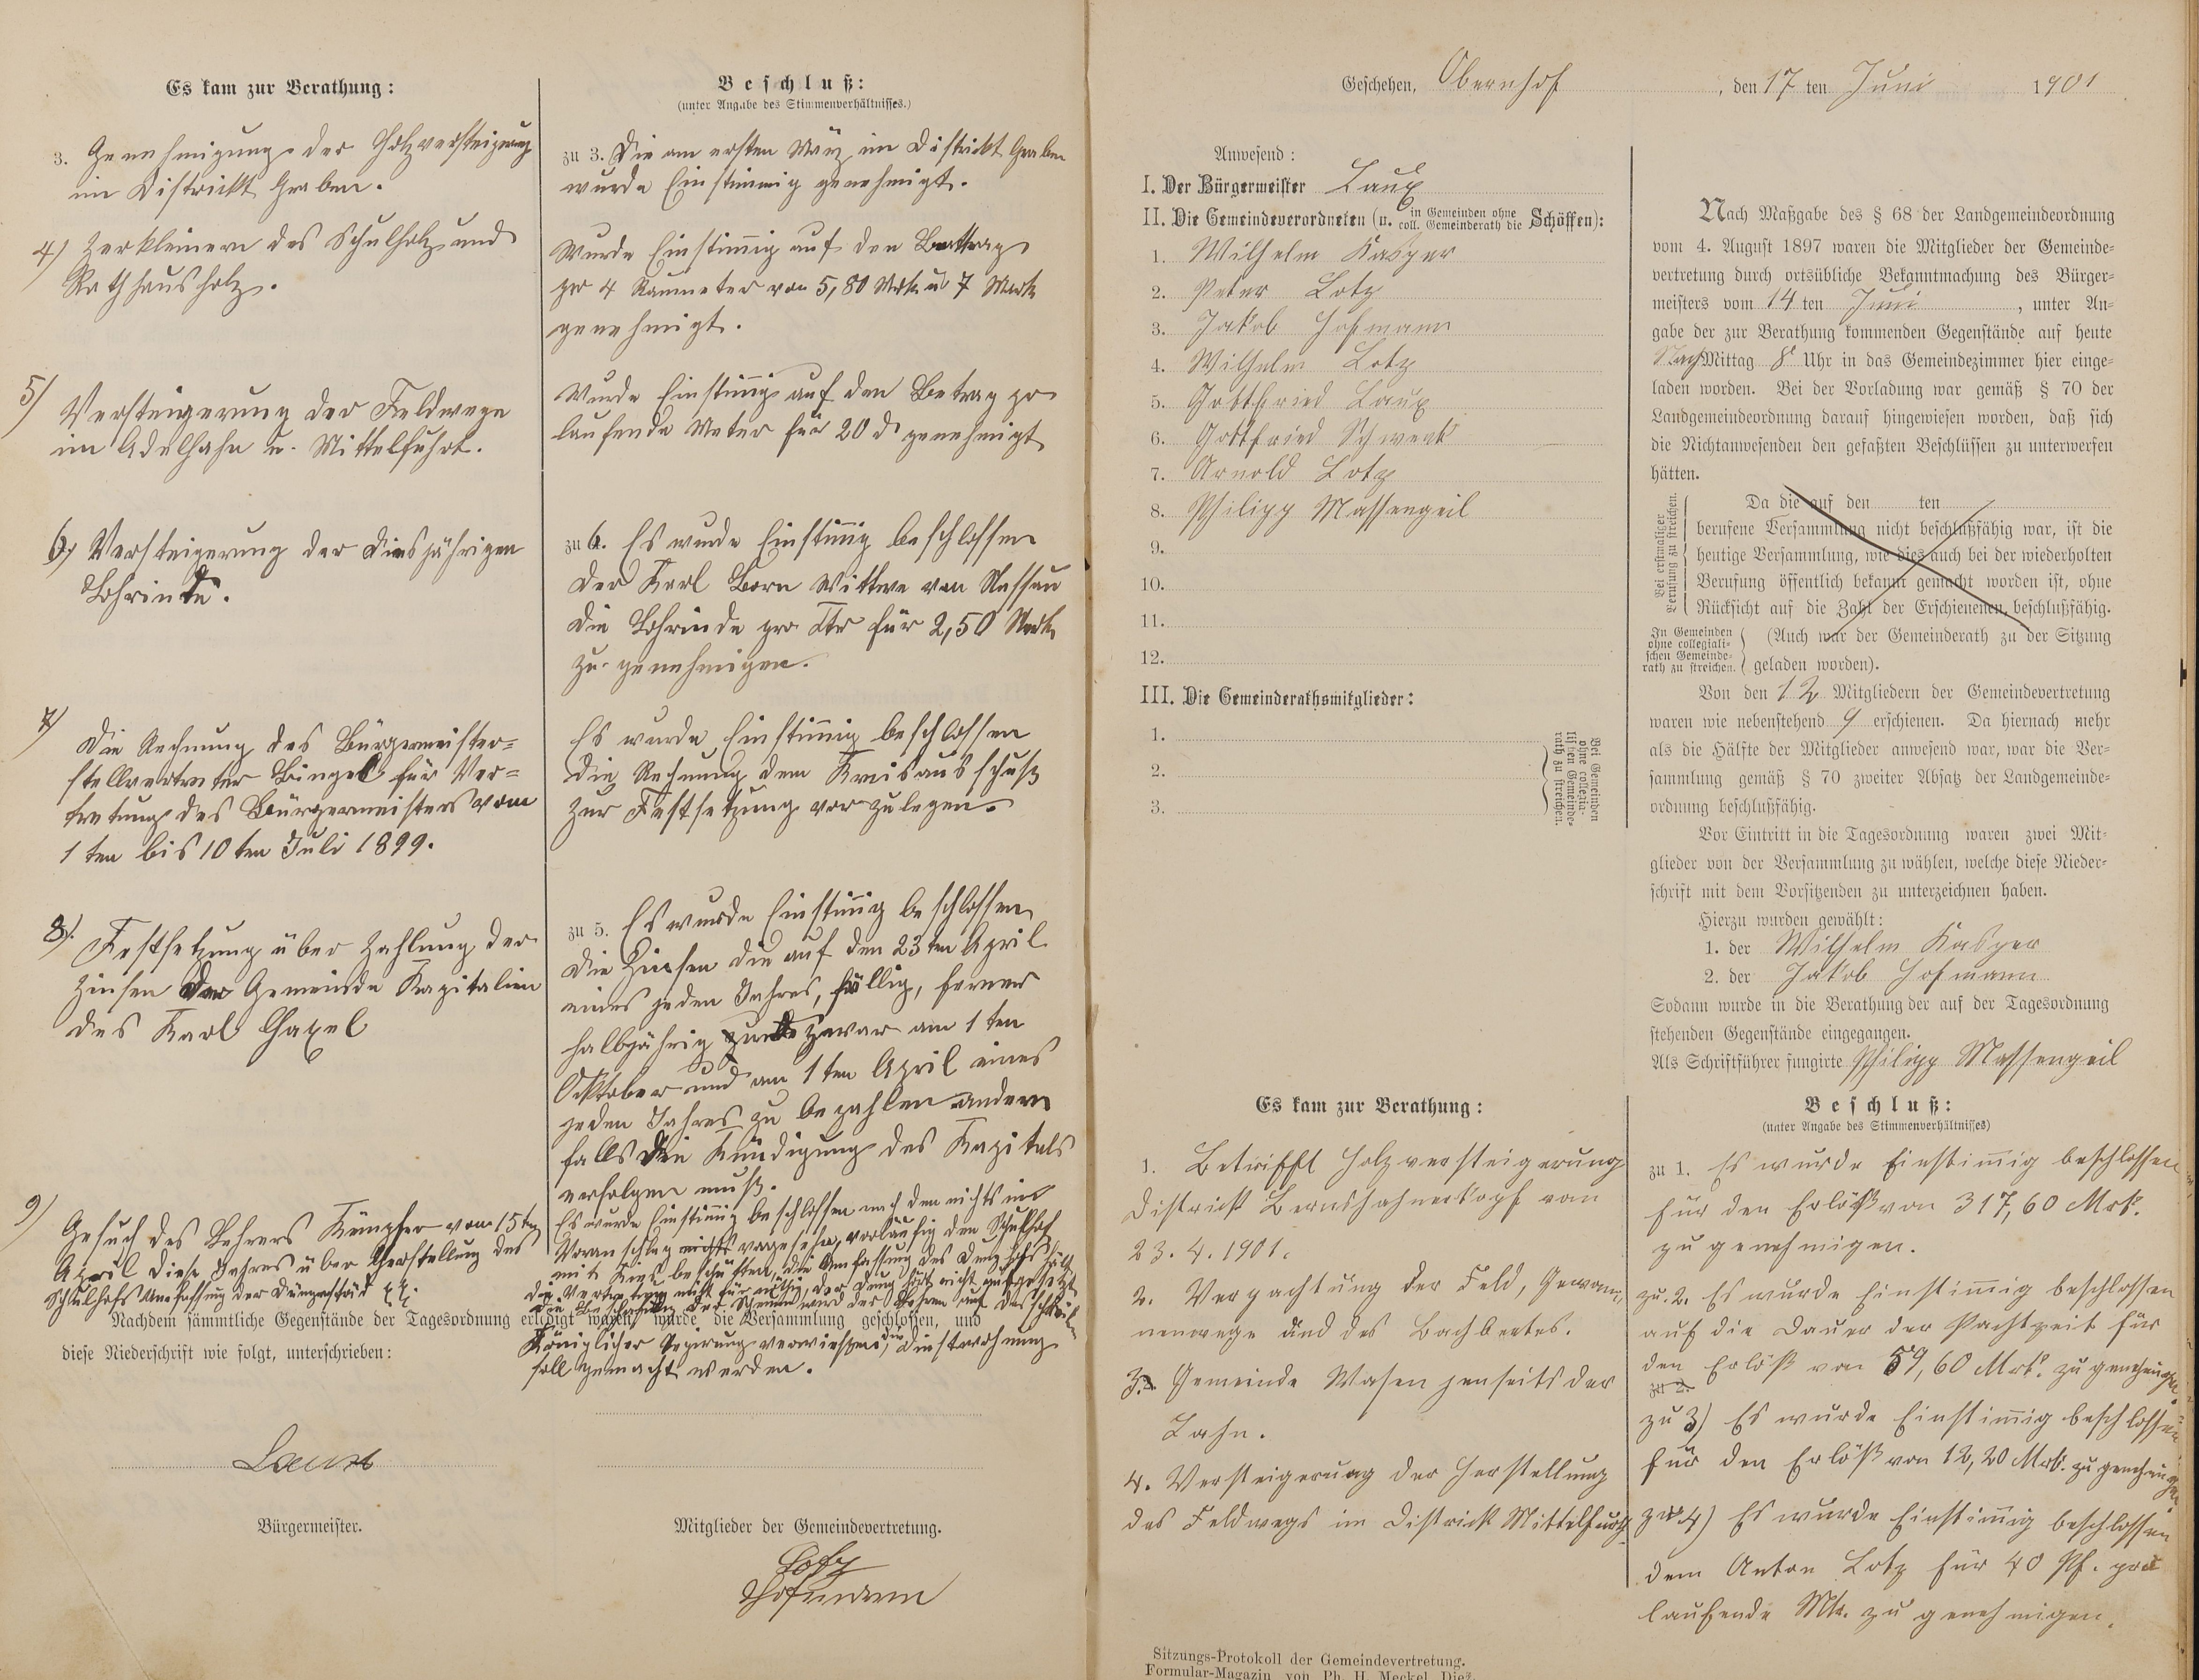 Es kam zur Berathung:
3. Genehmigung der Holzversteigerung
im Districkt Graben.
4) Zerkleinern des Schulholz und
Rathhausholz.
5) Versteigerung der Feldwege
im Adulhahn u. Mittelfuhrt.
6) Versteigerung der diesjährigen
Lohrinde.
7) Die Rechnung des Bürgermeister-
stellvertreter Bingel für Ver-
tretung des Bürgermeisters vom
1 ten bis 10 ten Juli 1899.
8) Festsetzung über Zahlung der
Zinsen der Gemeinde Kapitalien
des Karl
9) Gesuch des Lehrers Kämpfer vom 15ten
April diese Jahres über Herstellung des
Schulhofs Umfassung der
Beschluß:
(unter Angabe des Stimmenverhältnisses.)
zu 3. Die am ersten März im Districkt Graben
wurde Einstimmig genehmigt.
Wurde Einstimig auf den Bettrag
pro 4 Raumeter von 5,80 Mrk u 7 Mark
genehmigt.
Wurde Einstimig auf den Betrag pro
laufende Meter für 20 d genehmigt
zu 6. Es wurde Einstimig beschlossen
der Karl Born Wittwe von Nassau
die Lohrinde pro Ctr für 2,50 Mark
zu genehmigen.
Es wurde Einstimig beschlossen
die Rechnung dem Kreisausschuß
zur Festsetzung vorzulegen.
zu 5. Es wurde Einstimig beschlossen
die Zinsen die auf den 23ten April
eines jeden Jahres, fällig, ferner
halbjährig zwar am 1 ten
Ocktober und am 1 ten April eines
jeden Jahres zu bezahlen andern
falls die Kündigung des Kapitals
erfolgen muß.
Es wurde Einstimig beschlossen nach den nichts ins
Voranschlag nichts vorgesehn, vorläufig den Schulhof
mit Kies beschütten, die Umfassung des
die Vertretung nicht für nöthig, der nicht
die der wird der Lehrer auf der
Königlicher Regierung verwiesen, die Dinstwohnung
soll gemacht werden.
Nachdem sämmtliche Gegenstände der Tagesordnung erledigt waren, wurde die Versammlung geschlossen, und
diese Niederschrift wie folgt, unterschrieben:
Laux
Bürgermeister.
Mitglieder der Gemeindevertretung.
Lotz
Hofmann
Geschehen, Obernhof, den 17 ten Juni 1901
Anwesend:
I. Der Bürgermeister Laux
II. Die Gemeindeverordneten (u. in Gemeinden ohne coll. Gemeinderath die Schöffen):
1. Wilhelm Kasper
2. Peter Lotz
3. Jakob Hofmann
4. Wilhelm Lotz
5. Gottfried Laux
6. Gottfried Schwenk
7. Arnold Lotz
8. Philipp Massengeil
9.
10.
11.
12.
III. Die Gemeinderathsmitglieder:
1.
2.
3.
Bei Gemeinden
ohne collegia-
lischen Gemeinde-
rath zu streichen.
Nach Maßgabe des § 68 der Landgemeindeordnung
vom 4. August 1897 waren die Mitglieder der Gemeinde-
vertretung durch ortsübliche Bekanntmachung des Bürger-
meisters vom 14 ten Juni, unter An-
gabe der zur Berathung kommenden Gegenstände auf heute
NachMittag 8 Uhr in das Gemeindezimmer hier einge-
laden worden. Bei der Vorladung war gemäß § 70 der
Landgemeindeordnung darauf hingewiesen worden, daß sich
die Nichtanwesenden den gefaßten Beschlüssen zu unterwerfen
hätten.
Bei erstmaliger
Berufung zu streichen.
Da die auf den ten
berufene Versammlung nicht beschlußfähig war, ist die
heutige Versammlung, wie dies auch bei der wiederholten
Berufung öffentlich bekannt gemacht worden ist, ohne
Rücksicht auf die Zahl der Erschienenen, beschlußfähig.
In Gemeinden
ohne collegiali-
schen Gemeinde-
rath zu streichen.
(Auch war der Gemeinderath zu der Sitzung
geladen worden).
Von den 12 Mitgliedern der Gemeindevertretung
waren wie nebenstehend 9 erschienen. Da hiernach mehr
als die Hälfte der Mitglieder anwesend war, war die Ver-
sammlung gemäß § 70 zweiter Absatz der Landgemeinde-
ordnung beschlußfähig.
Vor Eintritt in die Tagesordnung waren zwei Mit-
glieder von der Versammlung zu wählen, welche diese Nieder-
schrift mit dem Vorsitzenden zu unterzeichnen haben.
Hierzu wurden gewählt:
1. der Wilhelm Kasper
2. der Jakob Hofmann
Sodann wurde in die Berathung der auf der Tagesordnung
stehenden Gegenstände eingegangen.
Als Schriftführer fungirte Philipp Massengeil
Es kam zur Berathung:
1. Betrifft Holzversteigerung
District Bernshahnerkopf vom
23.4.1901.
2. Verpachtung der Feld, Gewann,
nenwege und des Bachbeetes.
3. Gemeinde Wasen jenseits der
Lahn.
4. Versteigerung der Herstellung
des Feldwegs im District Mittelfurth
Beschluß:
(unter Angabe des Stimmenverhältnisses)
zu 1. Es wurde Einstimig beschlossen
für den Erlöß von 317,60 Mrk.
zu genehmigen.
zu 2. Es wurde Einstimig beschlossen
auf die Dauer der Pachtzeit für
den Erlöß von 59,60 Mrk. zu genehmigen.
zu 2.
zu 3) Es wurde Einstimig beschlossen
für den Erlöß von 12,20 Mrk. zu genehmigen.
zu 4) Es wurde Einstimig beschlossen
dem Anton Lotz für 40 Pf. pro
laufende Mtr. zu genehmigen.
Sitzungs-Protokoll der Gemeindevertretung.
Formular-Magazin von Ph. H. Meckel, Diez.